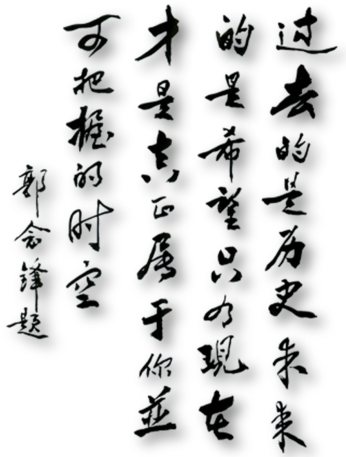 过去的是历史未来
的是希望只有現在
才是真正属于你並
可把握的时空
郭念鋒題